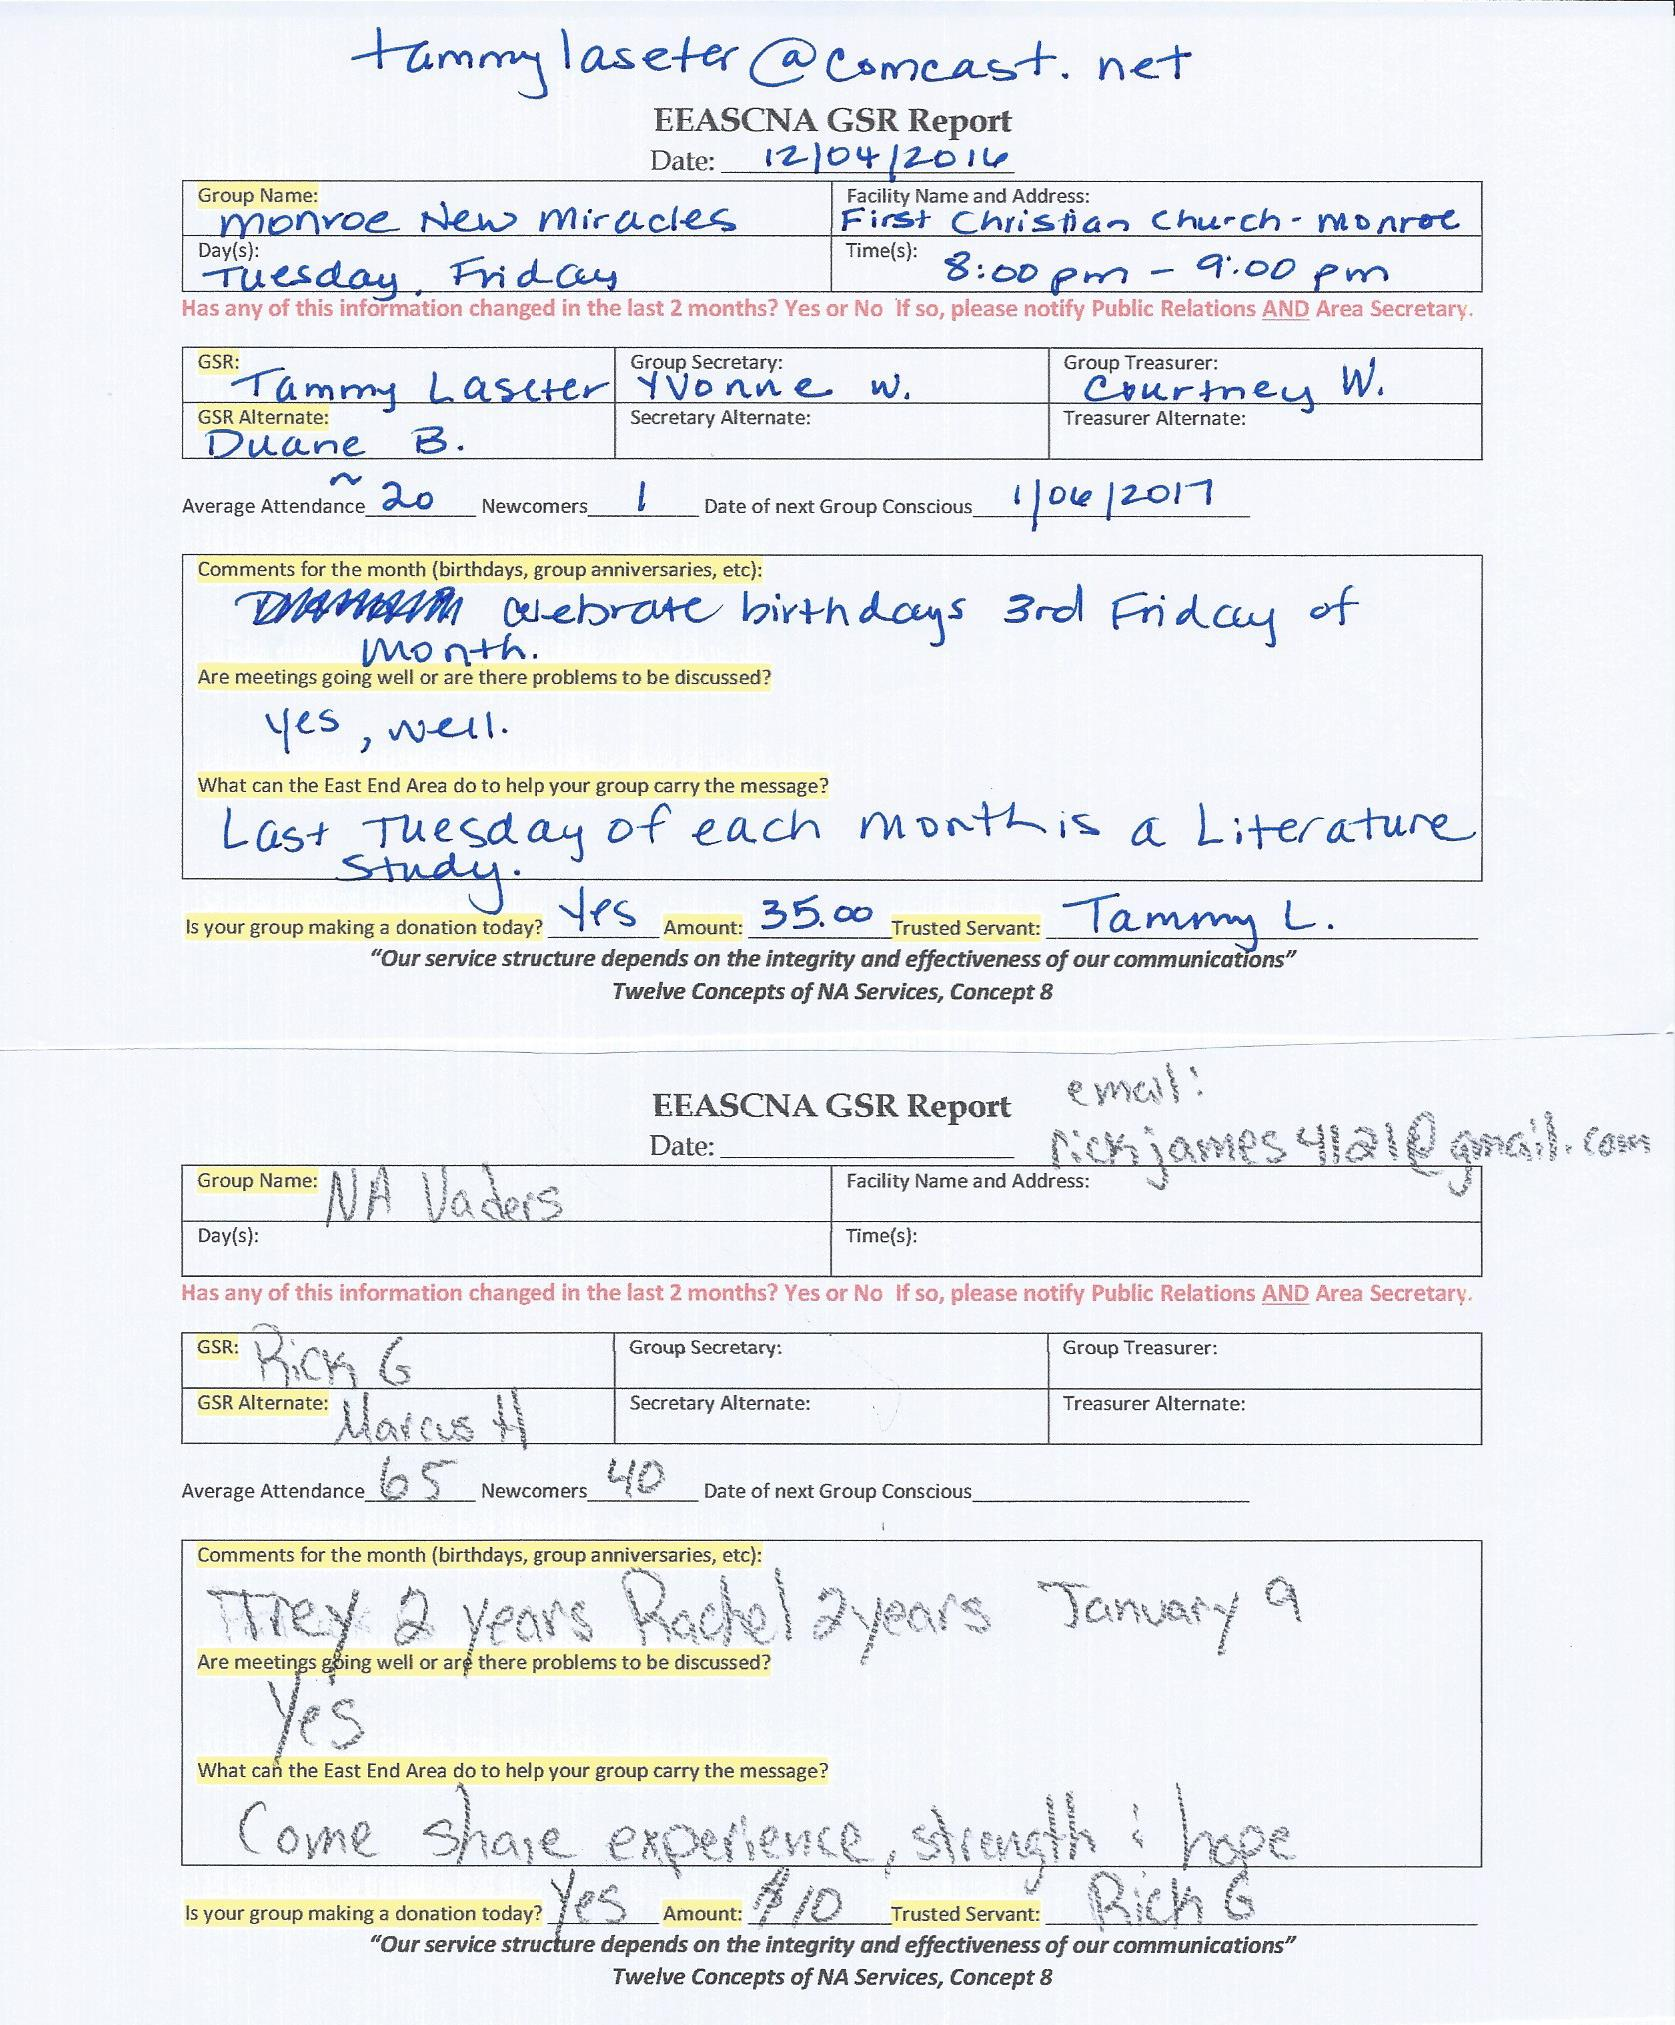 tammylaseter@comcast.net
EEASCNA GSR Report
Date: 12/04/2016
Group Name: Monroe New Miracles
Facility Name and Address: First Christian Church - Monroe
Day(s): Tuesday, Friday
Time(s): 8:00 pm - 9:00 pm
Has any of this information changed in the last 2 months? Yes or No If so, please notify Public Relations AND Area Secretary.
GSR: Tammy Laseter
Group Secretary: Yvonne W.
Group Treasurer: Courtney W.
GSR Alternate: Duane B.
Secretary Alternate:
Treasurer Alternate:
Average Attendance ~20 Newcomers 1 Date of next Group Conscious 1/06/2017
Comments for the month (birthdays, group anniversaries, etc):
celebrate birthdays 3rd Friday of
Month.
Are meetings going well or are there problems to be discussed?
yes, well.
What can the East End Area do to help your group carry the message?
Last Tuesday of each month is a Literature
Study.
Is your group making a donation today? Yes Amount: 35.00 Trusted Servant: Tammy L.
“Our service structure depends on the integrity and effectiveness of our communications”
Twelve Concepts of NA Services, Concept 8
email:
EEASCNA GSR Report
rickjames4121@gmail.com
Date:
Group Name: NA Vaders
Facility Name and Address:
Day(s):
Time(s):
Has any of this information changed in the last 2 months? Yes or No If so, please notify Public Relations AND Area Secretary.
GSR: Rick G
Group Secretary:
Group Treasurer:
GSR Alternate: Marcus H
Secretary Alternate:
Treasurer Alternate:
Average Attendance 65 Newcomers 40 Date of next Group Conscious
Comments for the month (birthdays, group anniversaries, etc):
Trey 2 years Rachel 2 years January 9
Are meetings going well or are there problems to be discussed?
Yes
What can the East End Area do to help your group carry the message?
Come share experience, strength & hope
Is your group making a donation today? Yes Amount: $10 Trusted Servant: Rick G
“Our service structure depends on the integrity and effectiveness of our communications”
Twelve Concepts of NA Services, Concept 8